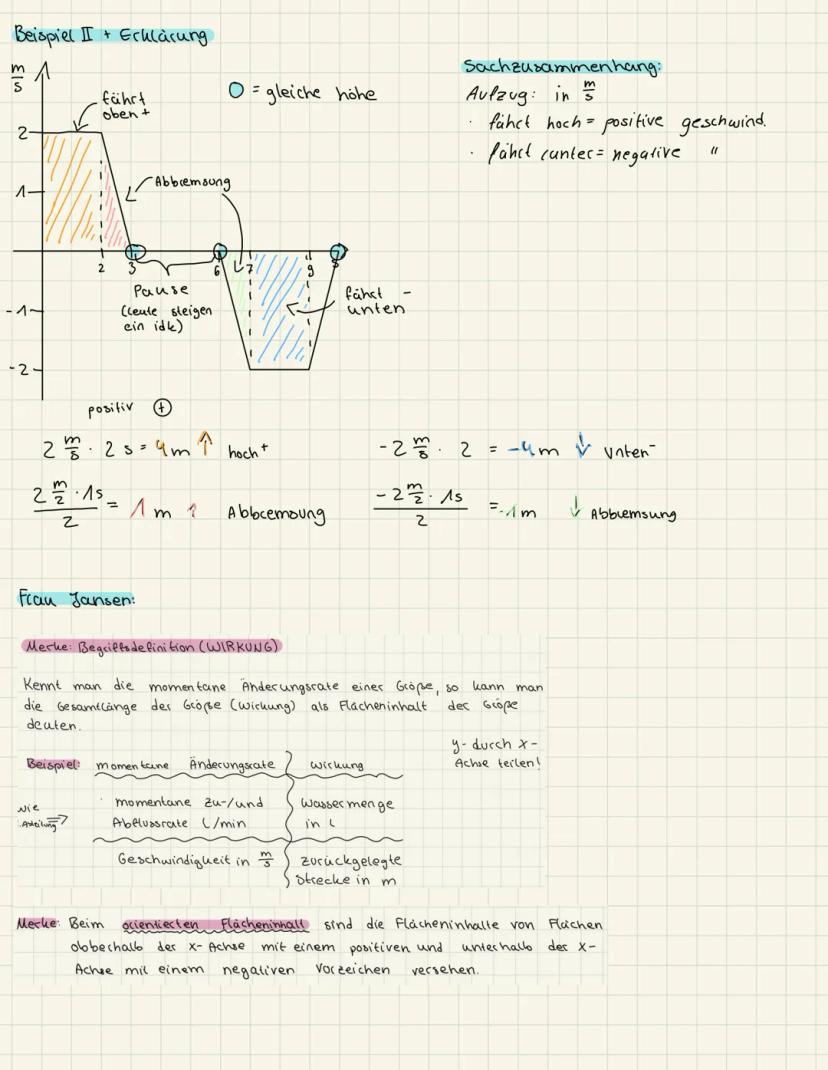 Beispiel II + Erklärung
m/s
fährt
oben +
= gleiche höhe
Sachzusammenhang:
Aufzug: in m/s
· fährt hoch = positive geschwind.
· fährt runter = negative "
2
1
Abbremsung
2 3 6 7 9
Pause
(leute steigen
ein idk)
fährt -
unten
-1
-2
positiv +
2 m/s · 2 s = 4 m ↑ hoch +
-2 m/s · 2 = -4 m ↓ Unten -
2 m/2 · 1s / 2 = 1 m ↑ Abbremsung
-2 m/2 · 1s / 2 = -1 m ↓ Abbremsung
Frau Jansen:
Merke: Begriffsdefinition (WIRKUNG)
Kennt man die momentane Änderungsrate einer Größe, so kann man
die Gesamtlänge der Größe (Wirkung) als Flächeninhalt der Größe
deuten.
y- durch x-
Achse teilen!
Beispiel: momentane Änderungsrate Wirkung
wie
Ableitung ⇒
· momentane Zu-/und
Abflussrate L/min
Wassermenge
in L
Geschwindigkeit in m/s
zurückgelegte
Strecke in m
Merke: Beim orientierten Flächeninhalt sind die Flächeninhalte von Flächen
obberhalb der x-Achse mit einem positiven und unterhalb der x-
Achse mit einem negativen Vorzeichen versehen.